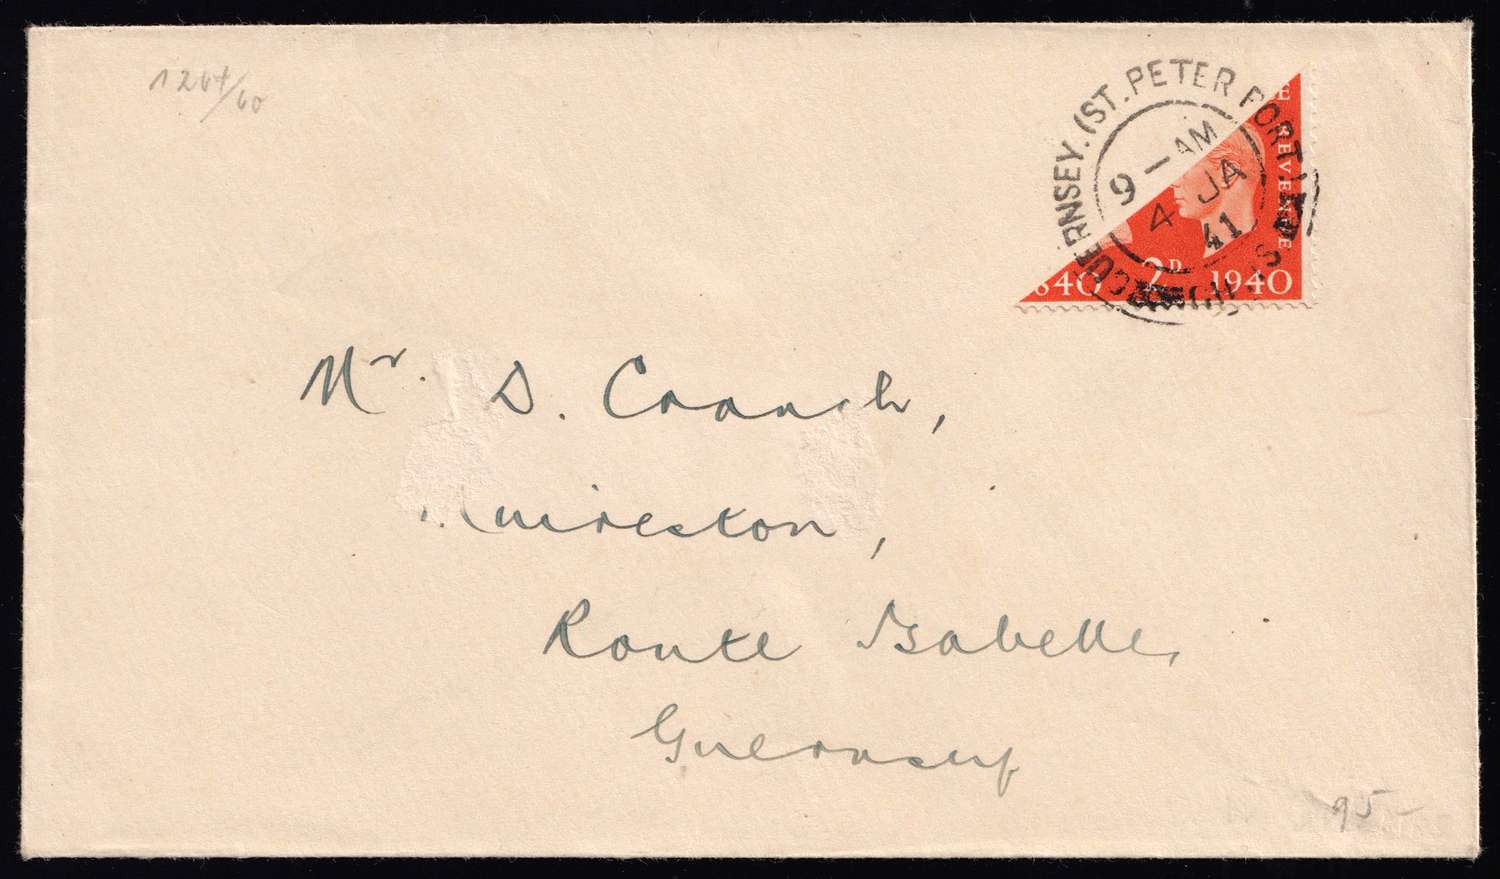 1264/60
GUERNSEY. (ST. PETER PORT)
CHANNEL IS
9 - AM
4 JA
41
E
REVENUE
840 2D 1940
Mr. D. Coanch,
uireston,
Route Isabelle,
Guernsey
95-